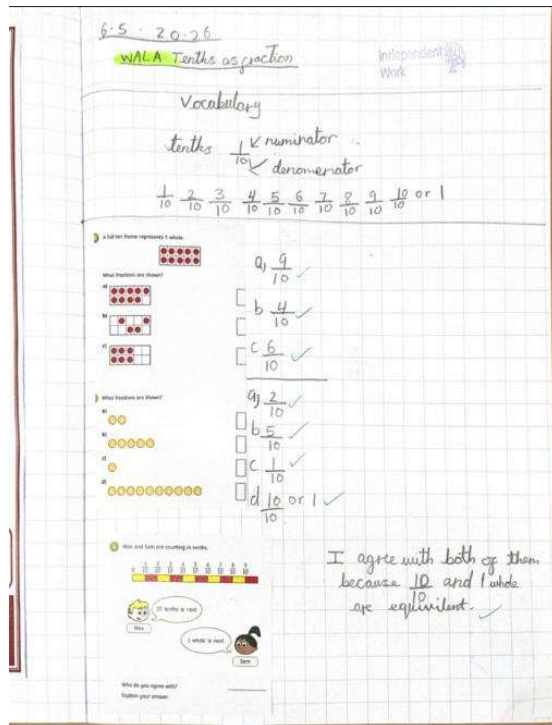 6.5.2026
WALA Tenths as fraction
Independent
Work
Vocabulary
tenths 1/10 numinator
denomenator
1/10 2/10 3/10 4/10 5/10 6/10 7/10 8/10 9/10 10/10 or 1
A full ten frame represents 1 whole.
What fractions are shown?
a)
b)
c)
a) 9/10
b 4/10
c 6/10
What fractions are shown?
a)
b)
c)
d)
a) 2/10
b 5/10
c 1/10
d 10/10 or 1
Max and Sam are counting in tenths.
0 1/10 2/10 3/10 4/10 5/10 6/10 7/10 8/10 9/10
10 tenths is next
Max
1 whole is next
Sam
Who do you agree with?
Explain your answer.
I agree with both of them
because 10/10 and 1 whole
are equivilent.